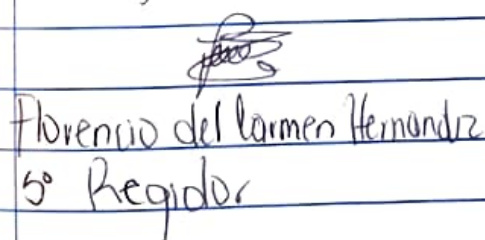 Florencio del Carmen Hernandz
5° Regidor